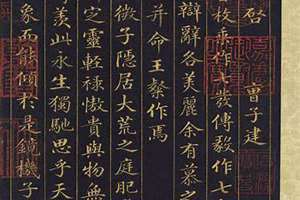 啓 曹子建
昔枚乘作七發傅毅作七
辯辭各美麗余有慕之
并命王粲作焉
微子隱居大荒之庭肥
定靈輕祿傲貴與物無
羨此永生獨馳思乎天
象而能傾於是鏡機子